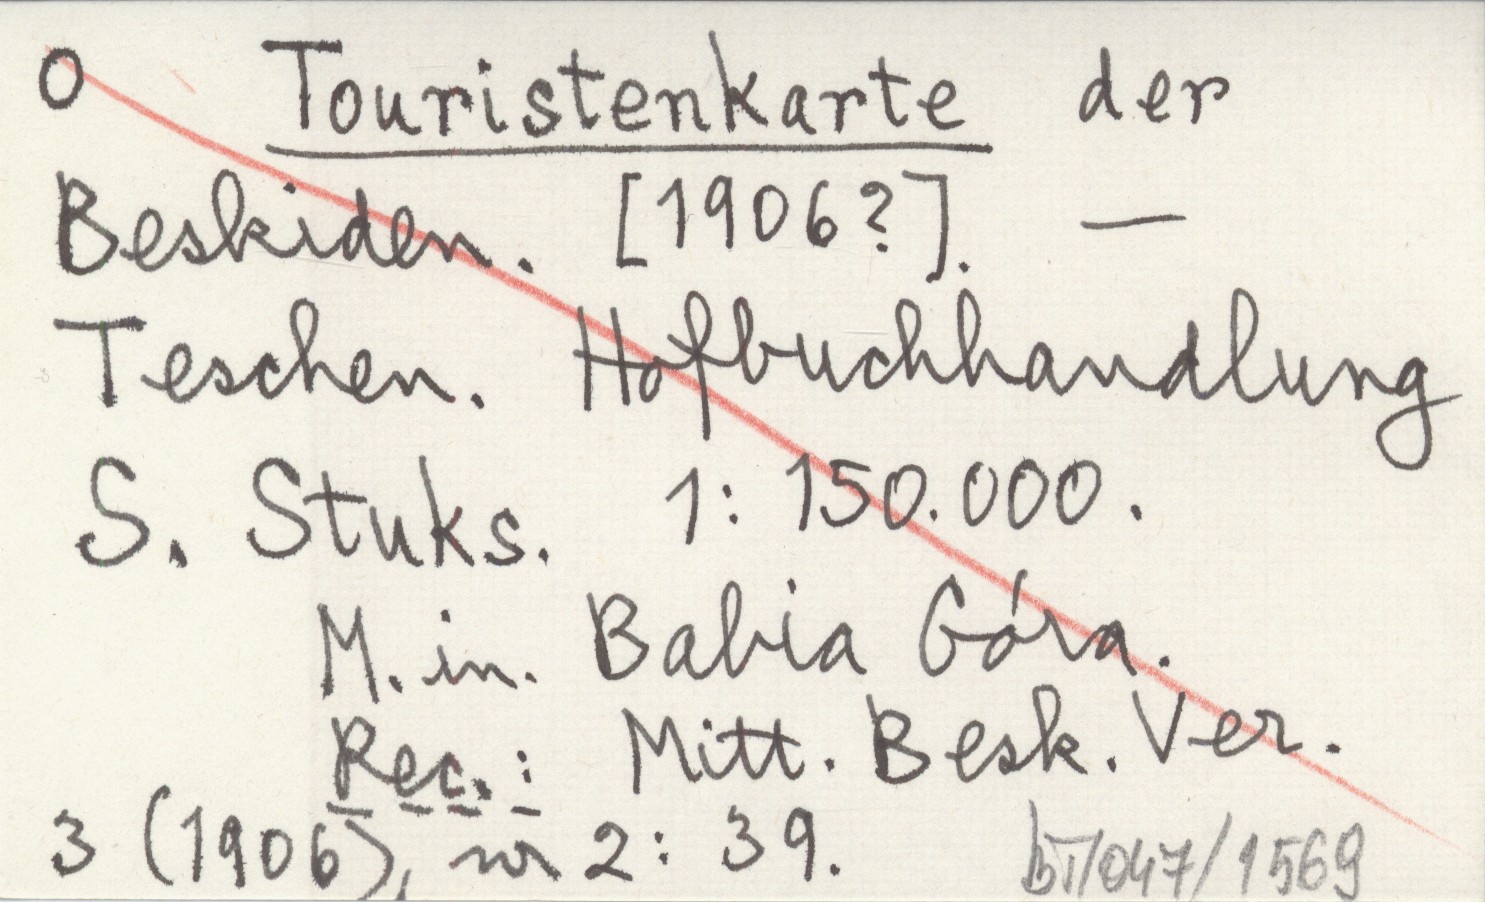 O Touristenkarte der
Beskiden. [1906?]. —
Teschen. Hofbuchhandlung
S. Stuks. 1:150.000.
M. in. Babia Góra.
Rec.: Mitt. Besk. Ver.
3 (1906), nr 2: 39. bT/047/1569